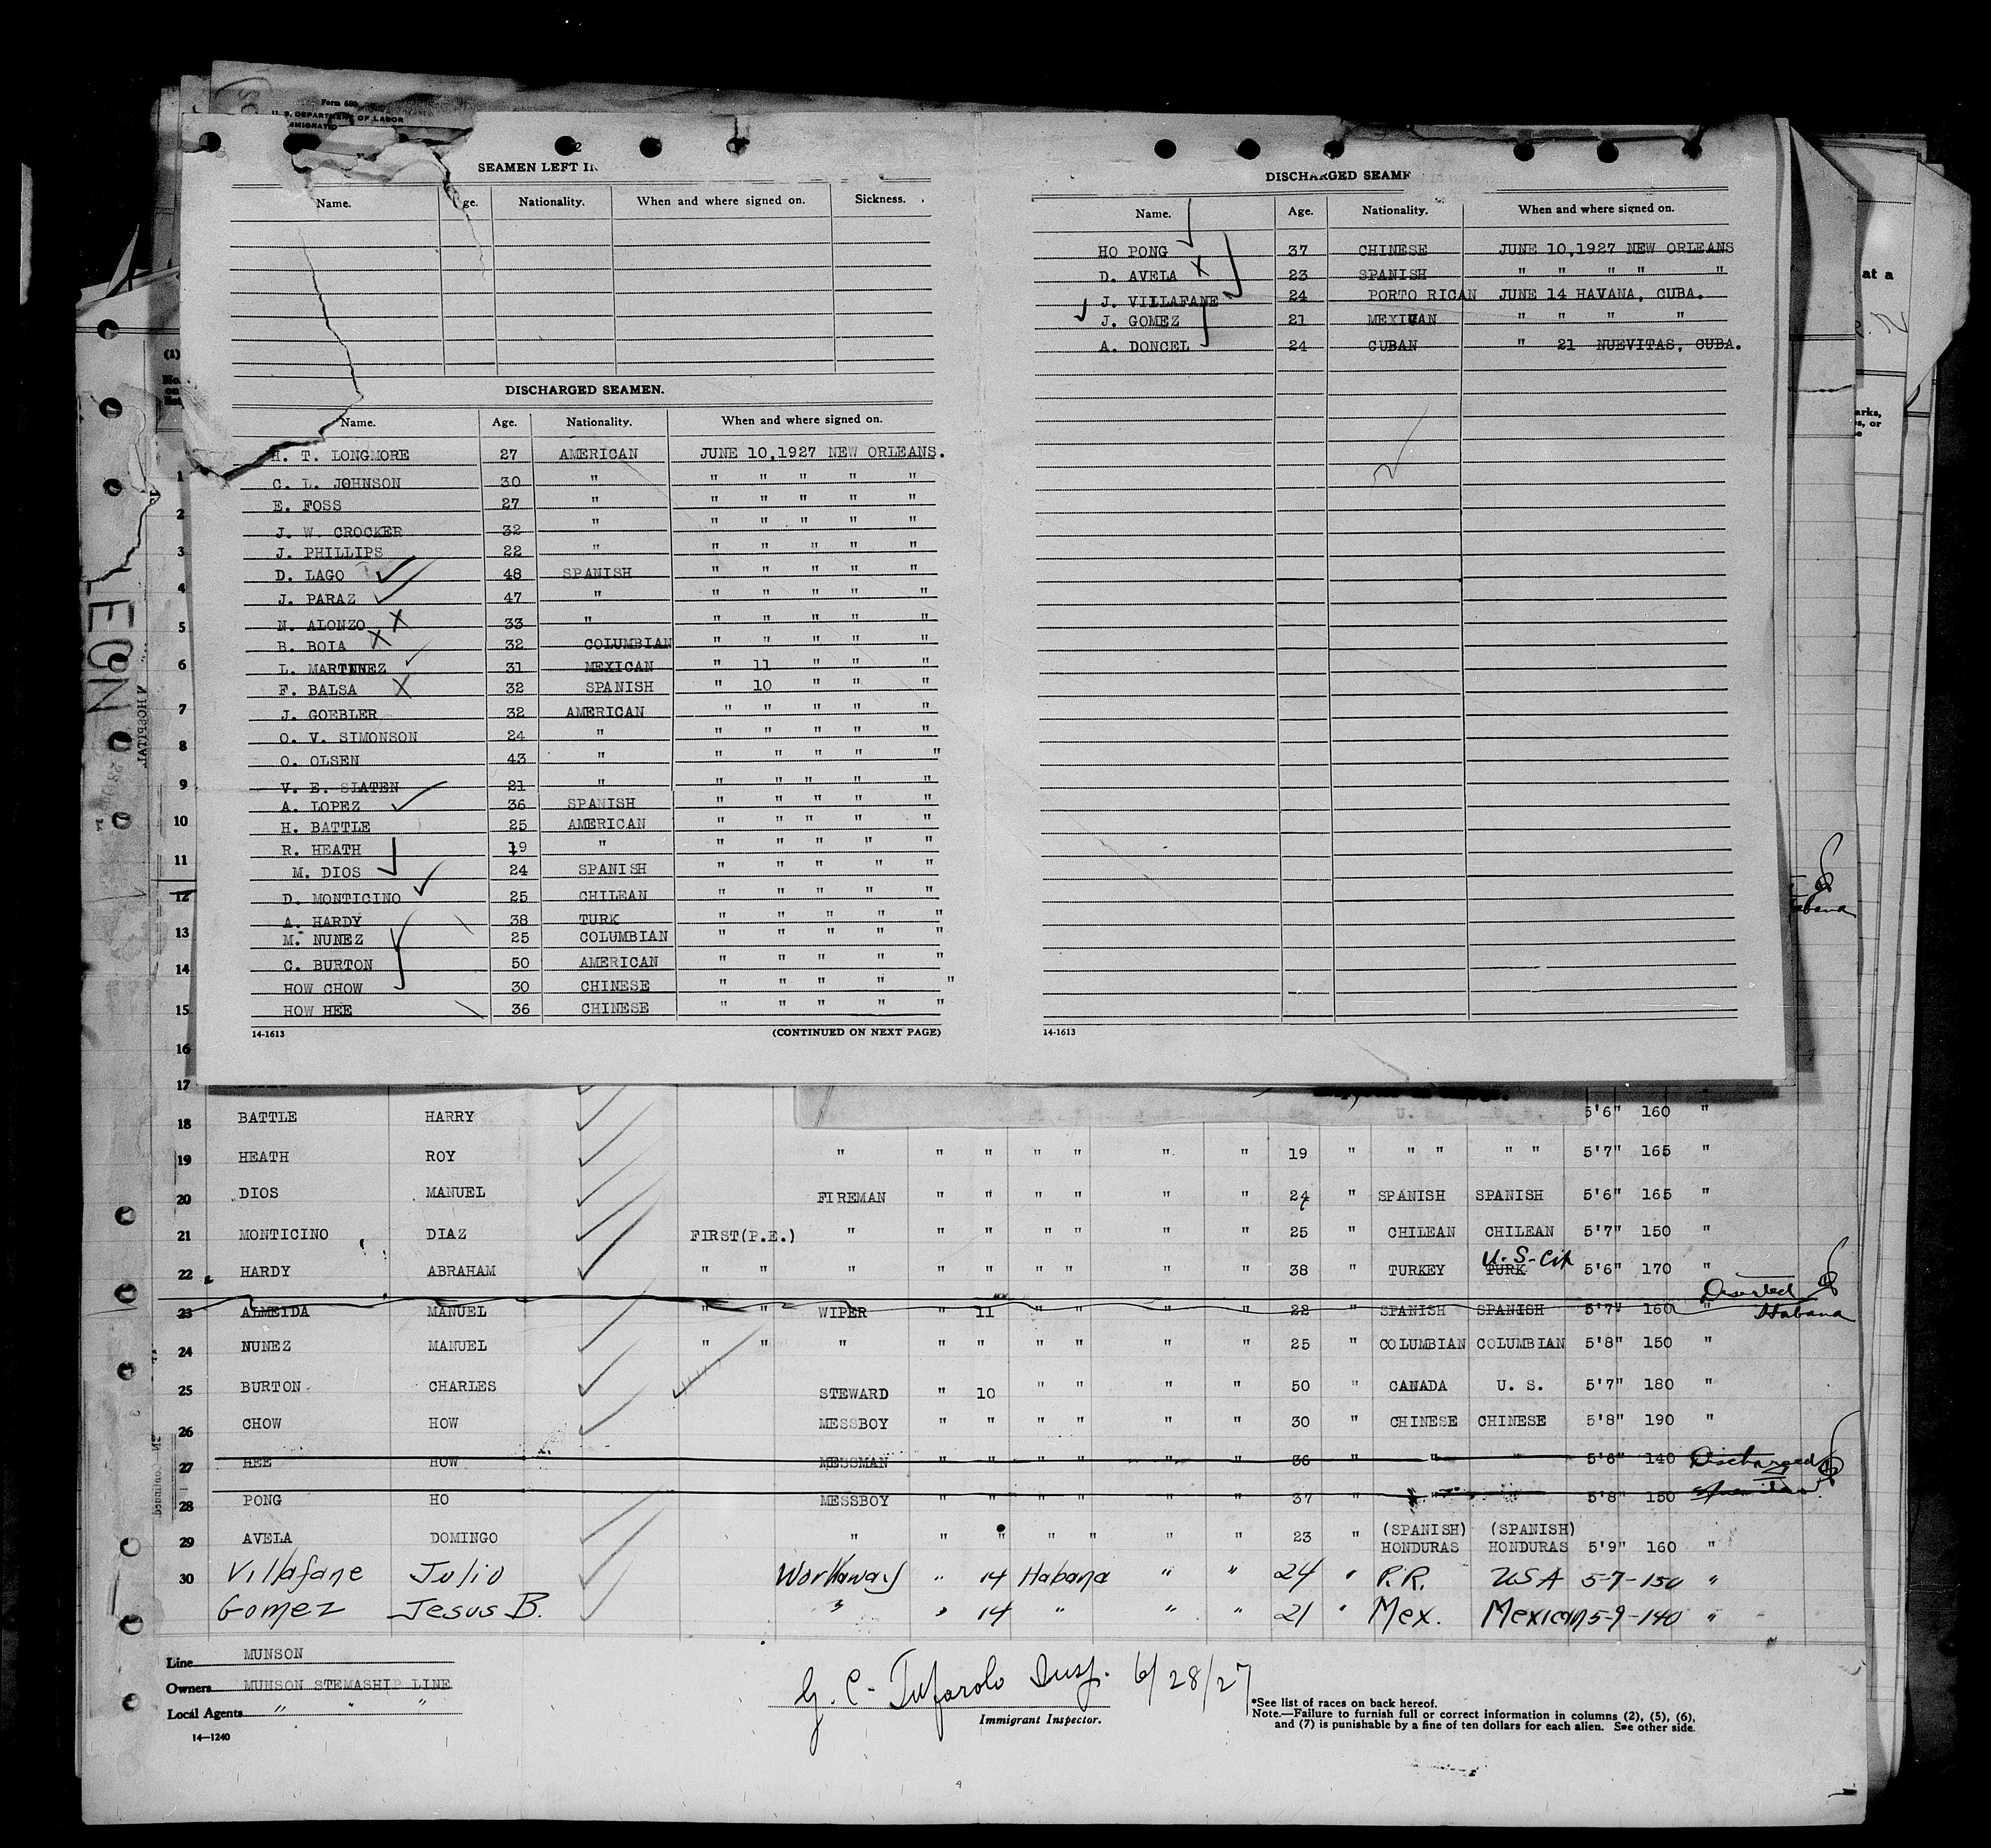 Form 680
U. S. DEPARTMENT OF LABOR
2
SEAMEN LEFT IN
Name. Age. Nationality. When and where signed on. Sickness.
DISCHARGED SEAMEN.
Name. Age. Nationality. When and where signed on.
H. T. LONGMORE 27 AMERICAN JUNE 10,1927 NEW ORLEANS.
C. L. JOHNSON 30 " " " " " "
E. FOSS 27 " " " " " "
J. W. CROCKER 32 " " " " " "
J. PHILLIPS 22 " " " " " "
D. LAGO 48 SPANISH " " " " "
J. PARAZ 47 " " " " " "
N. ALONZO X 33 " " " " " "
B. BOIA X 32 COLUMBIAN " " " " "
L. MARTINEZ 31 MEXICAN " 11 " " "
F. BALSA X 32 SPANISH " 10 " " "
J. GOEBLER 32 AMERICAN " " " " "
O. V. SIMONSON 24 " " " " " "
O. OLSEN 43 " " " " " "
V. E. SLATEN 21 " " " " " "
A. LOPEZ 36 SPANISH " " " " "
H. BATTLE 25 AMERICAN " " " " "
R. HEATH 19 " " " " " "
M. DIOS 24 SPANISH " " " " "
D. MONTICINO 25 CHILEAN " " " " "
A. HARDY 38 TURK " " " " "
M. NUNEZ 25 COLUMBIAN " " " " "
C. BURTON 50 AMERICAN " " " " "
HOW CHOW 30 CHINESE " " " " "
HOW HEE 36 CHINESE " " " " "
14-1613 (CONTINUED ON NEXT PAGE)
DISCHARGED SEAME
Name. Age. Nationality. When and where signed on.
HO PONG 37 CHINESE JUNE 10,1927 NEW ORLEANS
D. AVELA X 23 SPANISH " " " " "
J. VILLAFANE 24 PORTO RICAN JUNE 14 HAVANA, CUBA.
J. GOMEZ 21 MEXICAN " " " "
A. DONCEL 24 CUBAN " 21 NUEVITAS, CUBA.
14-1613
at a
arks,
s, or
e
LEON
1
2
3
4
5
6
7
8
9
10
11
12
13
14
15
16
17
18 BATTLE HARRY 5'6" 160 "
19 HEATH ROY " " " " " " " 19 " " " " " 5'7" 165 "
20 DIOS MANUEL FIREMAN " " " " " " 24 " SPANISH SPANISH 5'6" 165 "
21 MONTICINO DIAZ FIRST(P.E.) " " " " " " " 25 " CHILEAN CHILEAN 5'7" 150 "
22 HARDY ABRAHAM " " " " " " " " " 38 " TURKEY TURK U.S. Cit 5'6" 170 "
23 ALMEIDA MANUEL " " WIPER " 11 " " " " 22 " SPANISH SPANISH 5'7" 160 " Deserted Habana
24 NUNEZ MANUEL " " " " " " " " " 25 " COLUMBIAN COLUMBIAN 5'8" 150 "
25 BURTON CHARLES STEWARD " 10 " " " " 50 " CANADA U. S. 5'7" 180 "
26 CHOW HOW MESSBOY " " " " " " 30 " CHINESE CHINESE 5'8" 190 "
27 HEE HOW MESSMAN " " " " " " 36 " " " 5'6" 140 Discharged
28 PONG HO MESSBOY " " " " " " 37 " " " 5'8" 150
29 AVELA DOMINGO " " " " " " " 23 " (SPANISH) HONDURAS (SPANISH) HONDURAS 5'9" 160 "
30 Villafane Julio Workaway " 14 Habana " " 24 " P.R. USA 5-7-150 "
Gomez Jesus B. " " 14 " " " 21 " Mex. Mexican 5-9-140 "
Line MUNSON
Owners MUNSON STEMASHIP LINE
Local Agents " " "
14-1240
G. C. Tufarolo Insp. 6/28/27
Immigrant Inspector.
*See list of races on back hereof.
Note.—Failure to furnish full or correct information in columns (2), (5), (6),
and (7) is punishable by a fine of ten dollars for each alien. See other side.